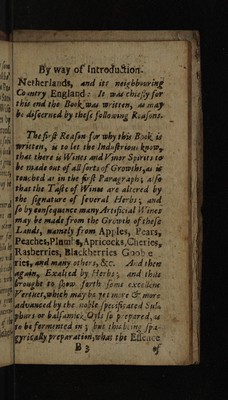 By way of Introduction.
Netherlands, and its neighbouring
Country England: It was chiefly for
this end the Book was written, as may
be discerned by these following Reasons.
The first Reason for why this Book is
written, is to let the Industrious know,
that there is Wines and Vinar Spirits to
be made out of all sorts of Growths, as is
touched at in the first Paragraph; also
that the Taste of Wines are altered by
the signature of several Herbs; and
so by consequence many Artificial Wines
may be made from the Growth of these
Lands, namely from Apples, Pears,
Peaches, Plumbs, Apricocks, Cheries,
Rasberries, Blackberries Goo e
ries, and many others, &c. And then
again, Exalted by Herbs; and thus
brought to show forth some excellent
Vertues, which may be yet more & more
advanced by the noble specificated Sul-
phurs or balsamick Oyls so prepared, as
to be fermented in; but this being spa-
gyrically preparation, what the Essence
B 3 of